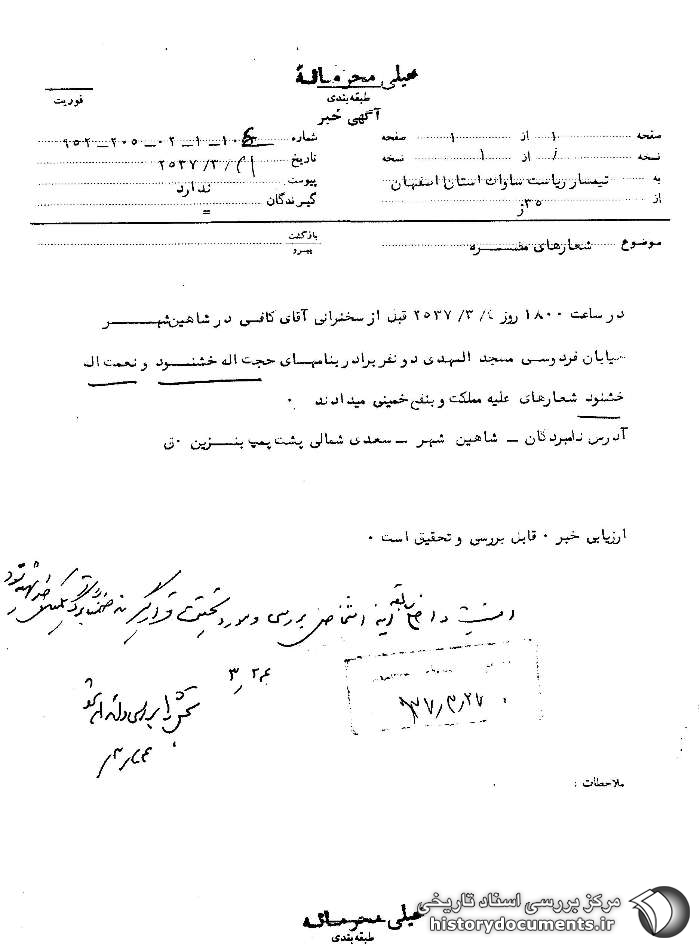 خیلی محرمانه
طبقه‌بندی
فوریت
آگهی خبر
صفحه ۱ از ۱ صفحه
شماره
نسخه ۱ از ۱ نسخه
تاریخ / ۳ / ۲۵۳۷
به تیمسار ریاست ساواک استان اصفهان
پیوست ندارد
از ۳۵ ز
گیرندگان =
موضوع شعارهای مضره
بازگشت
پیرو
در ساعت ۱۸۰۰ روز ۴/ ۳/ ۲۵۳۷ قبل از سخنرانی آقای کافی در شاهین‌شهر
خیابان فردوسی مسجد المهدی دو نفر برادر بنامهای حجت اله خشنود و نعمت اله
خشنود شعارهای علیه مملکت و بنفع خمینی میدادند ۰
آدرس نامبردگان ـ شاهین شهر ـ سعدی شمالی پشت پمپ بنزین ۰ق
ارزیابی خبر ۰ قابل بررسی و تحقیق است ۰
این اشخاص بررسی و مورد تحقیق قرار
۳٫۲۴
۳۷٫۳٫۲۷
ملاحظات :
خیلی محرمانه
طبقه‌بندی
مرکز بررسی اسناد تاریخی
historydocuments.ir